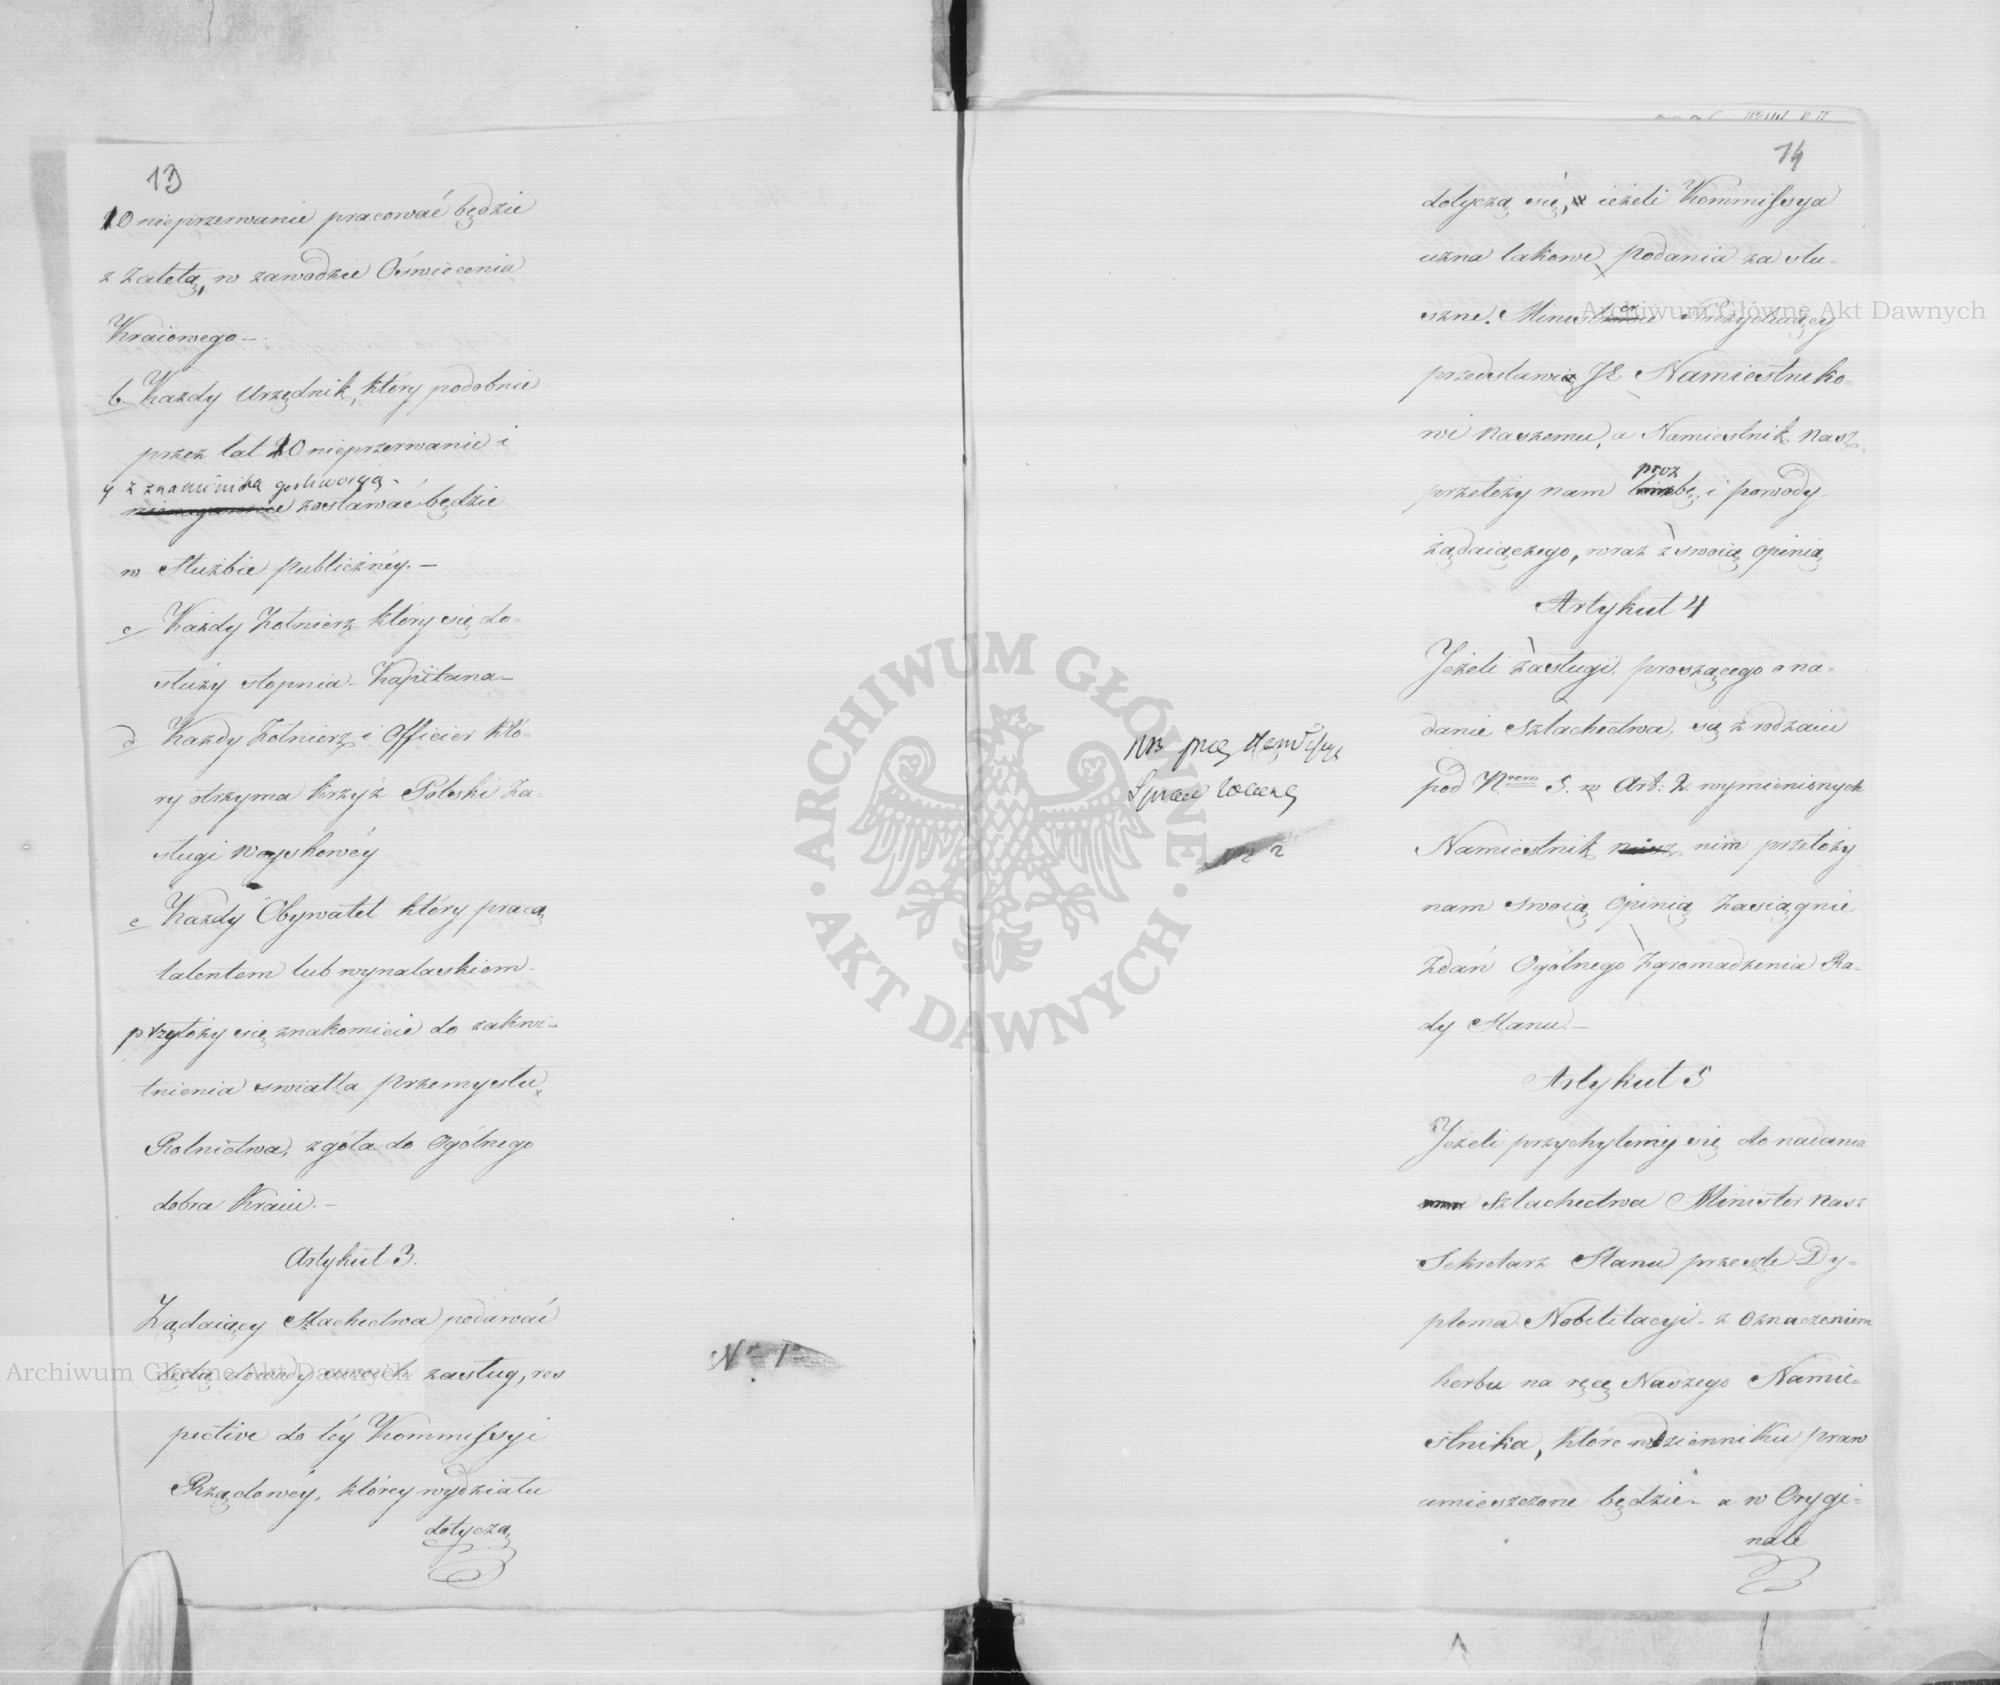 13
10 nieprzerwanie pracować będzie
z Zaletą, w zawodzie Oświecenia
Kraiowego –
b. Każdy Urzędnik, który podobnie
przez lat 10 nieprzerwanie i
zostawać będzie
w Służbie publicznéy. –
c Każdy Żołnierz który się do-
służy stopnia Kapitana –
d Każdy Żołnierz i Officier któ-
ry otrzyma krzyż Polski Za-
sługi woyskowéy
e Każdy Obywatel który pracą
talentem lub wynalaskiem
przyłoży się znakomicie do zakwi-
tnienia swiatła przemysłu,
Rolnictwa, zgóła do Ogólnego
dobra Kraiu. –
Artykuł 3.
Żądaiący Szlachectwa podawać
będą dowody swoich zasług, res
pective do téy Kommissyi
Rządowéy, którey wydziału
dotyczą
Nr 1
14
dotyczą się, ieżeli Kommissya
uzna takowe podania za słu-
szne. Minister Prezyduiący
przedstawi JE Namiestniko-
wi naszemu, a Namiestnik nasz
przełoży nam proźbę, i powody
żądaiącego, wraz z swoią opinią
Artykuł 4
Jeżeli zasługi, proszącego o na-
danie Szlachectwa, są z rodzaiu
pod N 5. w Art: 2. wymienionych
Namiestnik nim przełoży
nam swoią Opinią Zasiągnie
Zdań Ogólnego Zgromadzenia Ra-
dy Stanu –
Artykuł 5
Jeżeli przychylemy się do nadania
Szlachectwa Minister nasz
Sekretarz Stanu prześle Dy-
ploma Nobilitacyi – z oznaczeniem
herbu na ręcę Naszego Namie-
stnika, które w dzienniku praw
umieszczone będzie – a w Orygi-
nale
Archiwum Główne Akt Dawnych
Archiwum Główne Akt Dawnych
ARCHIWUM GŁÓWNE · AKT DAWNYCH ·